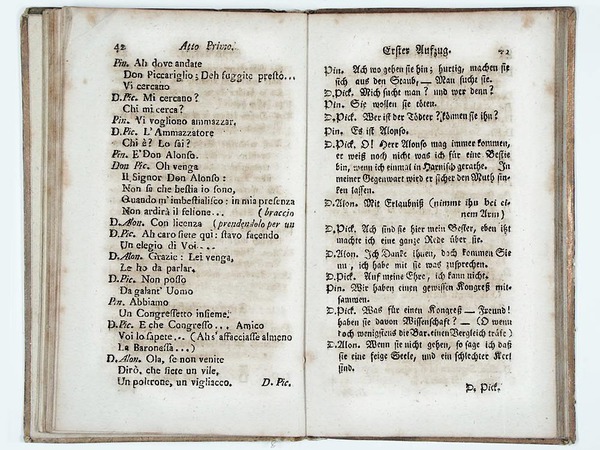 42 Atto Primo.
Pin. Ah dove andate
Don Piccariglio; Deh fuggite presto...
Vi cercano
D. Pic. Mi cercano?
Chi mi cerca?
Pin. Vi vogliono ammazzar,
D. Pic. L' Ammazzatore
Chi è? Lo sai?
Pin. E' Don Alonso.
Don Pic. Oh venga
Il Signor Don Alonso:
Non sa che bestia io sono,
Quando m' imbestialisco: in mia presenza
Non ardirà il fellone... (braccio
D. Alon. Con licenza (prendendolo per un
D. Pic. Ah caro siete quì: stavo facendo
Un elogio di Voi....
D. Alon. Grazie: Lei venga,
Le ho da parlar.
D. Pic. Non posso
Da galant' Uomo
Pin. Abbiamo
Un Congressetto insieme.
D. Pic. E che Congresso... Amico
Voi lo sapete... (Ah s' affacciasse almeno
La Baronessa...)
D. Alon. Ola, se non venite
Dirò, che siete un vile,
Un poltrone, un vigliacco. D. Pic.
Erster Aufzug.
Pin. Ach wo gehen sie hin; hurtig, machen sie
sich aus den Staub, — Man sucht sie.
D. Pick. Mich sucht man? und wer denn?
Pin. Sie wollen sie tödten.
D. Pick. Wer ist der Tödter? können sie ihn?
Pin. Es ist Alonso.
D. Pick. O! Herr Alonso mag immer kommen,
er weiß noch nicht was ich für eine Bestie
bin, wenn ich einmal in Harnisch gerathe. In
meiner Gegenwart wird er sicher den Muth sin-
ken lassen.
D. Alon. Mit Erlaubniß (nimmt ihn bei ei-
nem Arm)
D. Pick. Ach sind sie hier mein Bester, eben itzt
machte ich eine ganze Rede über sie.
D. Alon. Ich Danke ihnen, doch kommen Sie
nu, ich habe mit sie was zusprechen.
D. Pick. Auf meine Ehre, ich kann nicht.
Pin. Wir haben einen gewissen Kongreß mit-
sammen.
D. Pick. Was für einen Kongreß — Freund!
haben sie davon Wissenschaft? — (O wenn
doch wenigstens die Bar. einen Vergleich träfe)
D. Alon. Wenn sie nicht gehen, so sage ich daß
sie eine feige Seele, und ein schlechter Kerl
sind.
D. Pick.